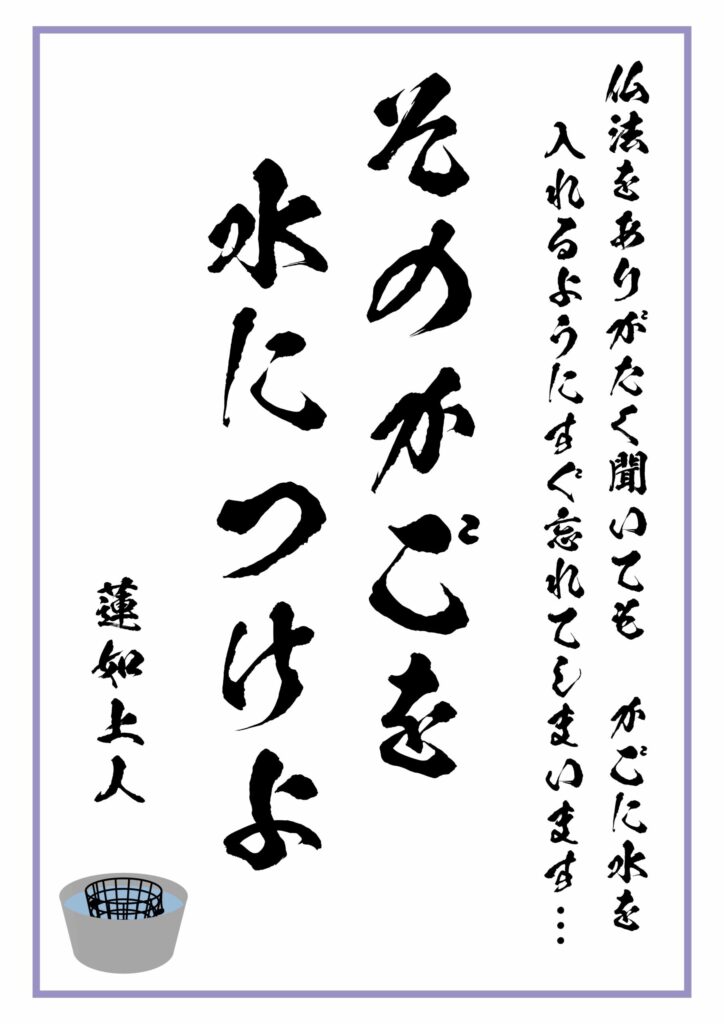 仏法をありがたく聞いても　かごに水を
入れるようにすぐ忘れてしまいます…
そのかごを
水につけよ
蓮如上人